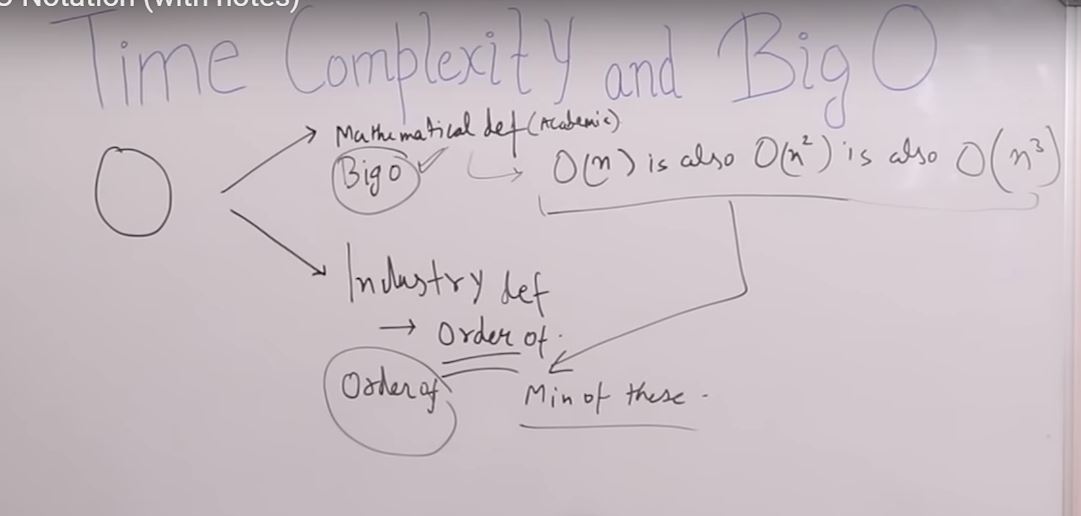 Notation (with notes)
Time Complexity and Big O
O
Mathematical def (Academic)
Big O
O(n) is also O(n²) is also O(n³)
Industry def
→ Order of.
Order of
Min of these.